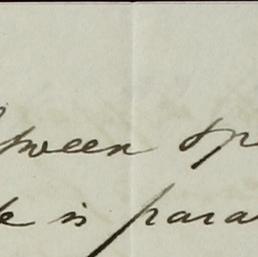 tween sp
le is para